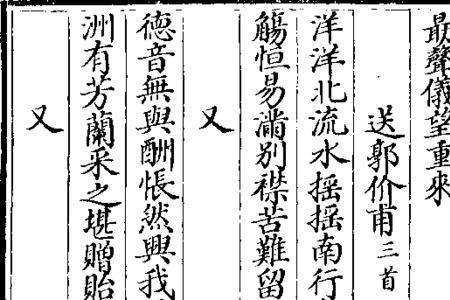 最聲儀望重來
送郭价甫三首
洋洋北流水揺揺南行
觴恒易滿別襟苦難留
又
德音無與酬悵然興我
洲有芳蘭采之堪贈貽
又